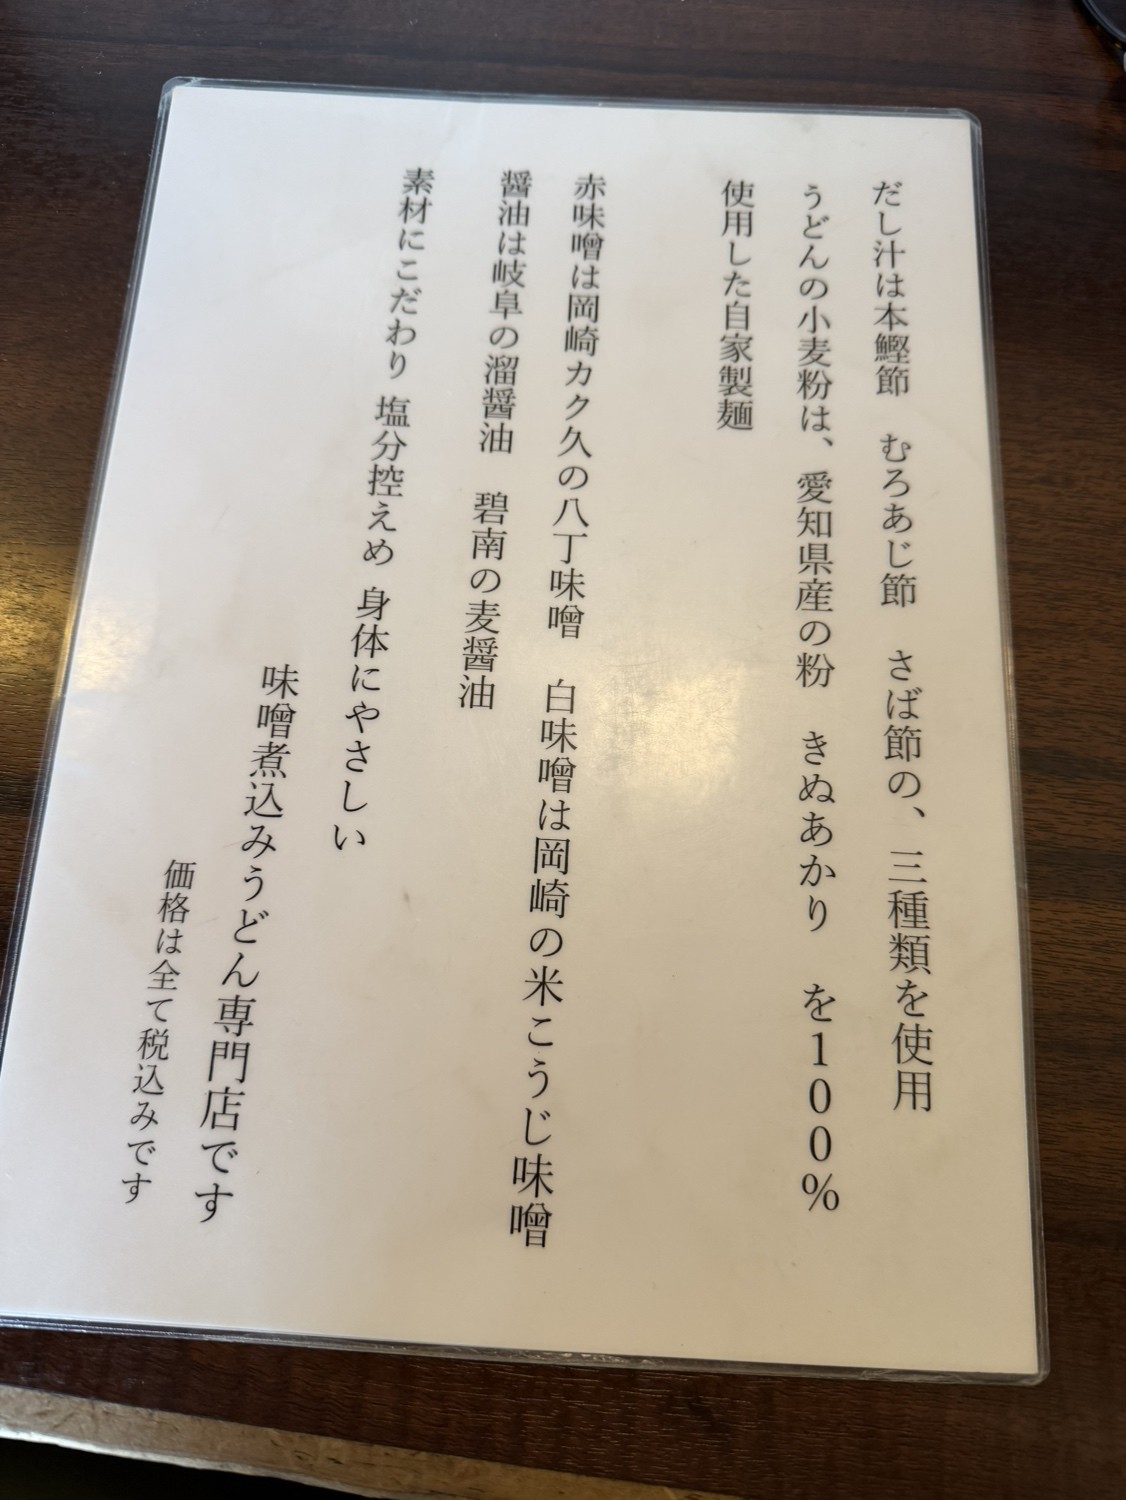 だし汁は本鰹節　むろあじ節　さば節の、三種類を使用
うどんの小麦粉は、愛知県産の粉　きぬあかり　を１００％
使用した自家製麺
赤味噌は岡崎カク久の八丁味噌　白味噌は岡崎の米こうじ味噌
醤油は岐阜の溜醤油　碧南の麦醤油
素材にこだわり 塩分控えめ 身体にやさしい
味噌煮込みうどん専門店です
価格は全て税込みです